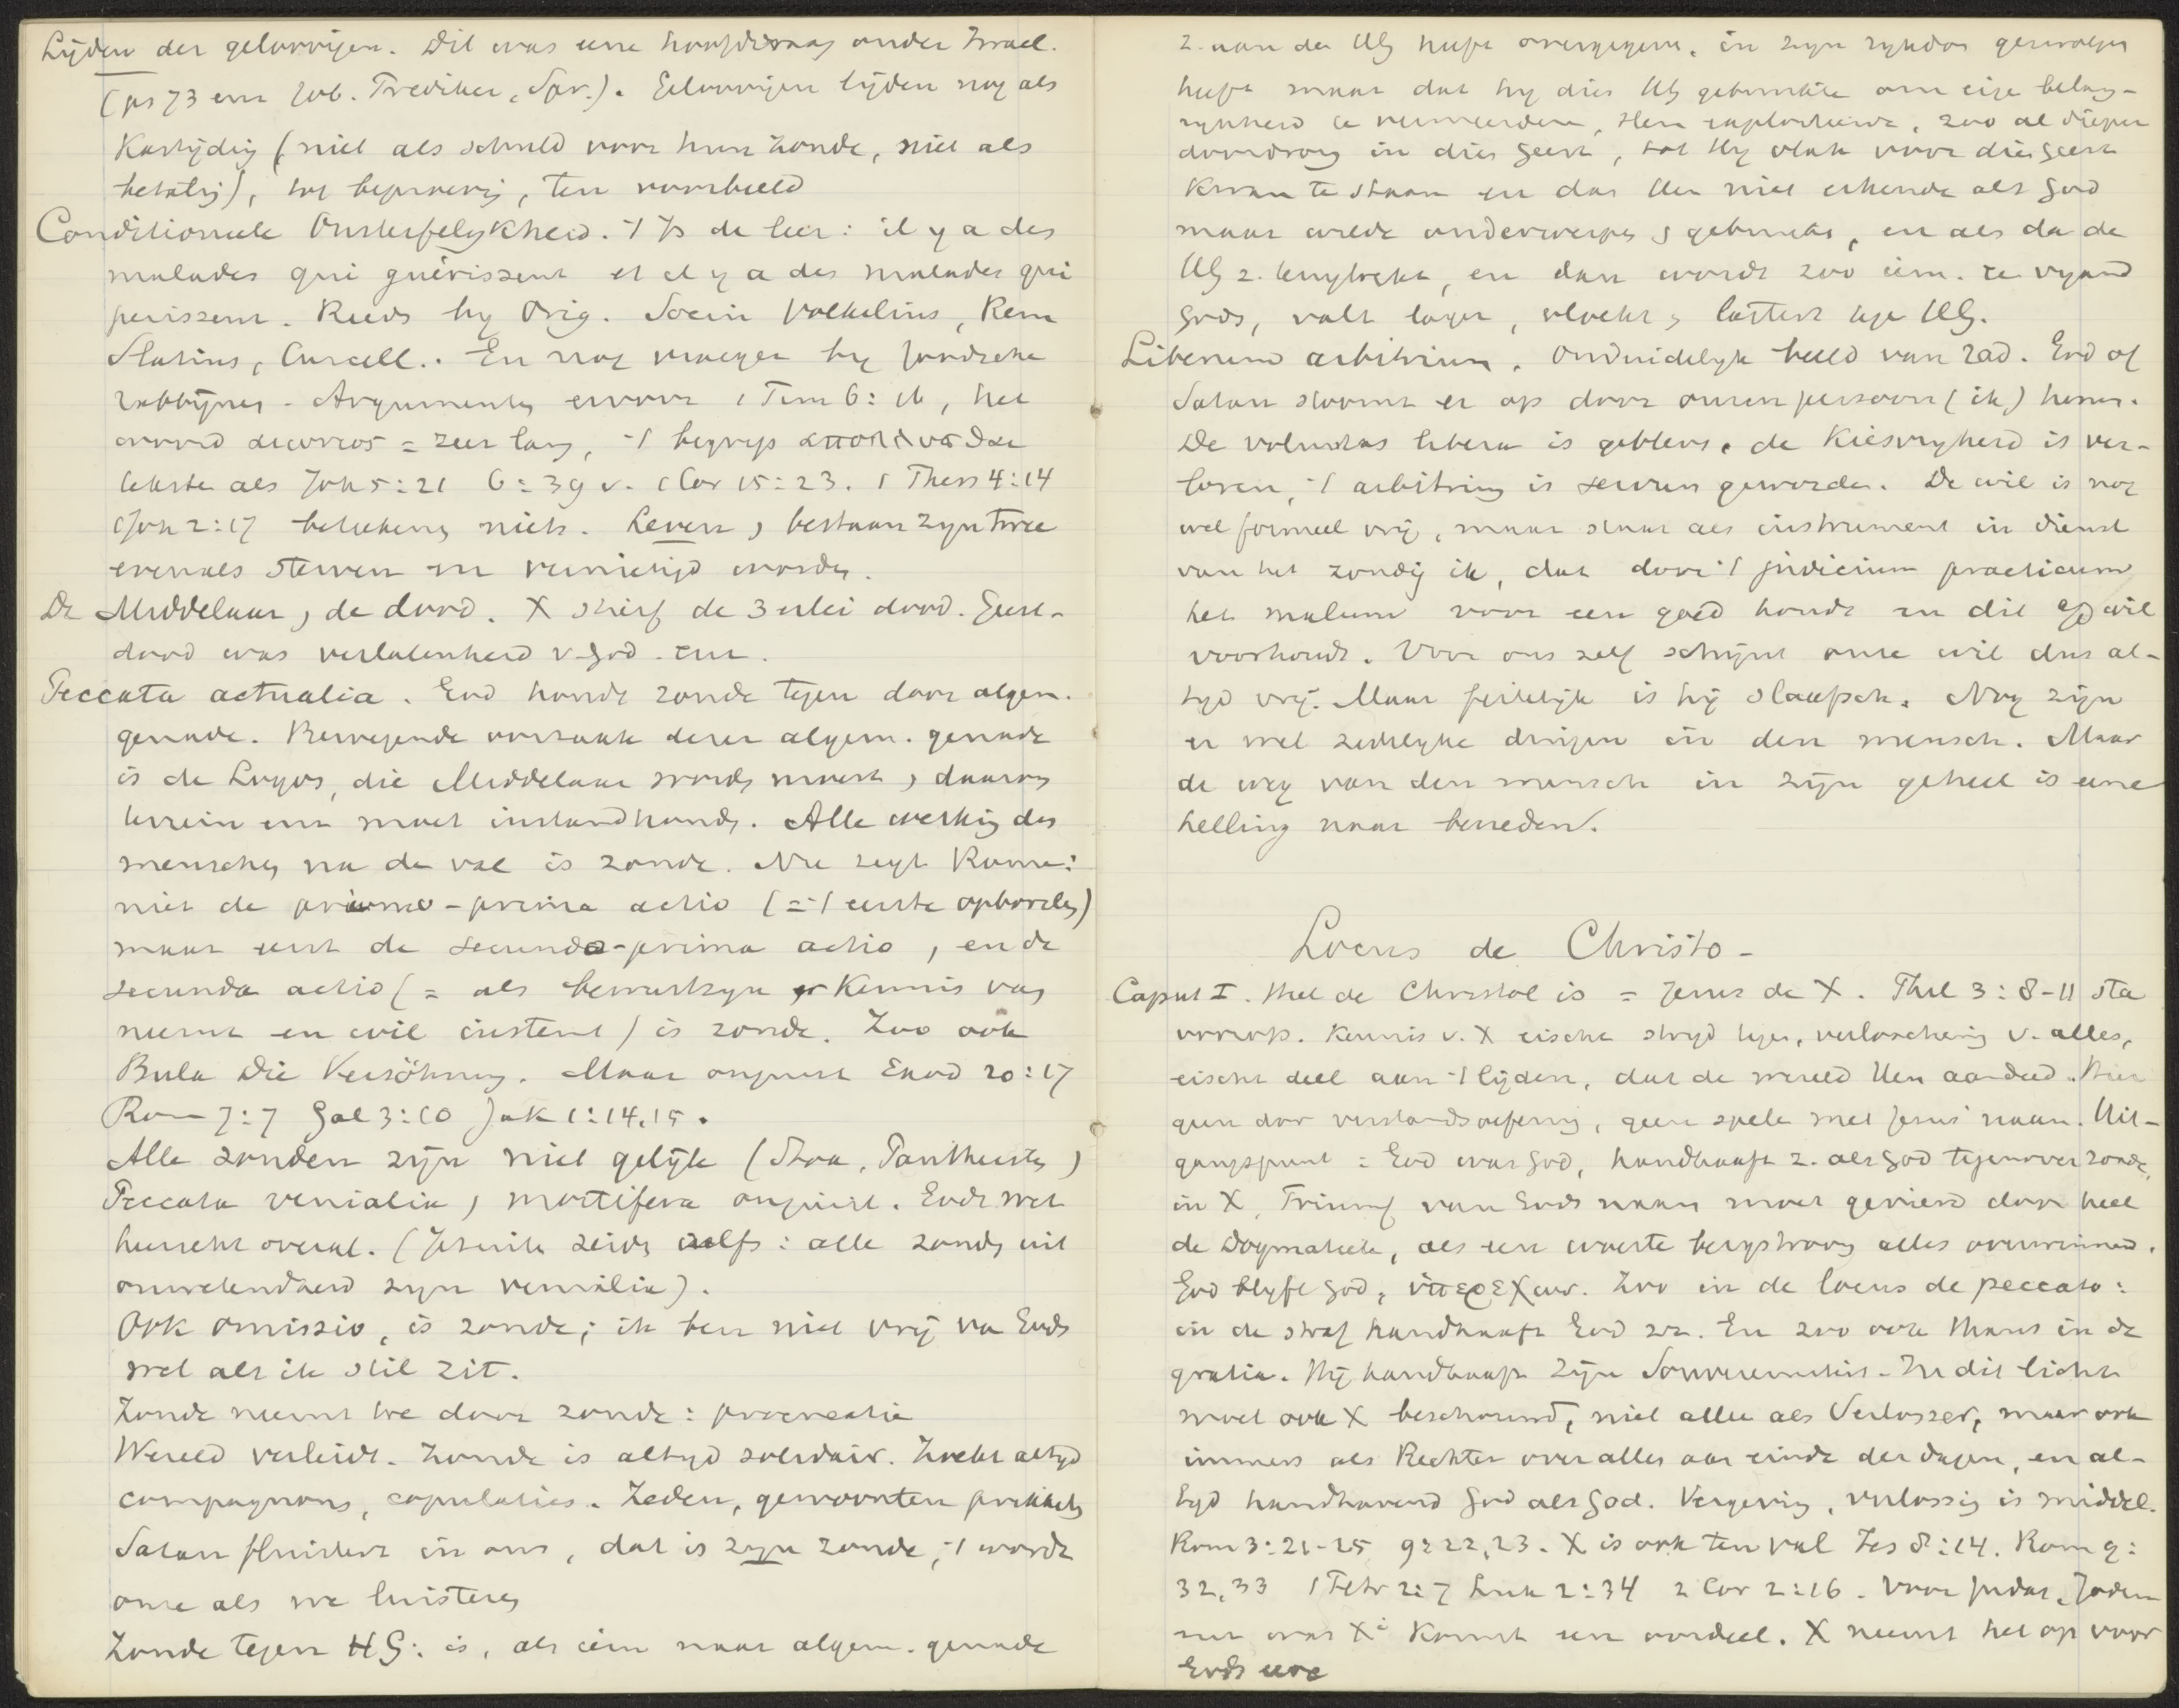 Lijden der geloovigen. Dit was eene hoofdvraag onder Israel.
(ps 73 enz Job. Prediker, Spr.). Geloovigen lijden nog als
Kastijding (niet als schuld voor hun zonde, niet als
betaling), tot beproeving, ten voorbeeld
Conditioneele Onsterfelykheid. 't Is de leer: il y a des
malades qui guérissent et il y a des malades qui
perissent. Reeds by Orig. Socin Volkelius, Rem
Slatius, Curcell.. En nog vroeger by Joodsche
rabbijnen. Argumenten ervoor 1 Tim 6:16, het
woord αιωνιος = zeer lang, 't begrip
teksten als Joh 5:21 6:39 v. 1 Cor 15:23. 1 Thess 4:14
1 Joh 2:17 beteekenen niets. Leven & bestaan zyn twee
evenals sterven en vernietigd worden.
De Middelaar & de dood. X stierf de 3 erlei dood. Geest-
dood was verlatenheid v. God. enz.
Peccata actualia. God houdt zonde tegen door algem.
genade. Bewegende oorzaak dezer algem. genade
is de Logos, die Middelaar worden moest & daarom
terrein enz moet instandhouden. Alle werking des
menschen na de val is zonde. Nu zegt Rome:
niet de primo-prima actio (= 't eerste opborrelen)
maar eerst de secundo-prima actio, en de
secunda actio (= als bewustzyn er Kennis van
neemt en wil instemt) is zonde. Zoo ook
Bula Die Versöhnung. Maar onjuist Exod 20:17
Rom 7:7 Gal 3:10 Jak 1:14,15.
Alle zonden zijn niet gelijk (Stoa, Pantheisten)
Peccata venialia & mortifera onjuist. Gods wet
heerscht overal. (Jezuiten zeiden zelfs: alle zonden uit
onwetendheid zyn venialia).
Ook omissio, is zonde; ik ben niet vrij van Gods
wet als ik stil zit.
Zonde neemt toe door zonde: procreatie
Wereld verleidt. Zonde is altyd solidair. Zoekt altyd
compagnons, copulaties. Zeden, gewoonten prikkelen
Satan fluistert in ons, dat is zyn zonde, 't wordt
onze als we luisteren
Zonde tegen HG: is, als iem naar algem. genade
z. aan den HG heeft overgegeven, in zyn rykdom gezwolgen
heeft maar dat hy dien HG gebruikte om eigen belang-
rykheid te vermeerderen, Hem exploiteerde, zoo al dieper
doordrong in dien Geest, tot Hy vlak voor dien Geest
kwam te staan en dan Hem niet erkende als God
maar wilde onderwerpen & gebruiken, en als dan de
HG z. terugtrekt, en dan wordt zoo iem. een vyand
Gods, valt lager, vloekt & lastert tegen HG.
Liberum arbitrium. Onduidelyk beeld van rad. God of
Satan stoomt er op door onzen persoon (ik) heen.
De voluntas libera is gebleven, de Kiesvryheid is ver-
loren, 't arbitrium is servum geworden. De wil is nog
wel formeel vrij, maar staat als instrument in dienst
van het zondig ik, dat door 't judicium practicum
het malum voor een goed houdt en dit wil
voorhoudt. Voor ons zelf schijnt onze wil dus al-
tyd vrij. Maar feitelijk is hij slaafsch. Nog zijn
er wel zedelyke dingen in den mensch. Maar
de weg van den mensch in zijn geheel is eene
helling naar beneden.
Locus de Christo -
Caput I. Met de Christol is = Jezus de X. Phil 3:8-11 sta
voorop. Kennis v. X eischt stryd tegen, verloochening v. alles,
eischt deel aan 't lijden, dat de wereld Hem aandeed. Hier
geen dor verstandsoefening, geen spelen met Jezus' naam. Uit-
gangspunt = God was God, handhaaft z. als God tegenover zonde,
in X. Triumf van Gods naam moet gevierd door heel
de Dogmatiek, als een woeste bergstroom alles overwinnend.
God blyft God, υπερεχων. Zoo in de locus de peccato:
in de straf handhaaft God zn. En zoo ook thans in de
gratia. Hij handhaaft Zijn Souvereiniteit. In dit licht
moet ook X beschouwd, niet alleen als Verlosser, maar ook
immers als Rechter over alles aan einde der dagen, en al-
tyd handhavend God als God. Vergeving, verlossing is middel.
Rom 3:21-25 9:22,23. X is ook ten val Jes 8:14. Rom 9:
32,33 1 Petr 2:7 Luk 2:34 2 Cor 2:16. Voor Judas, Joden
enz was X's Komst een oordeel. X neemt het op voor
Gods eere